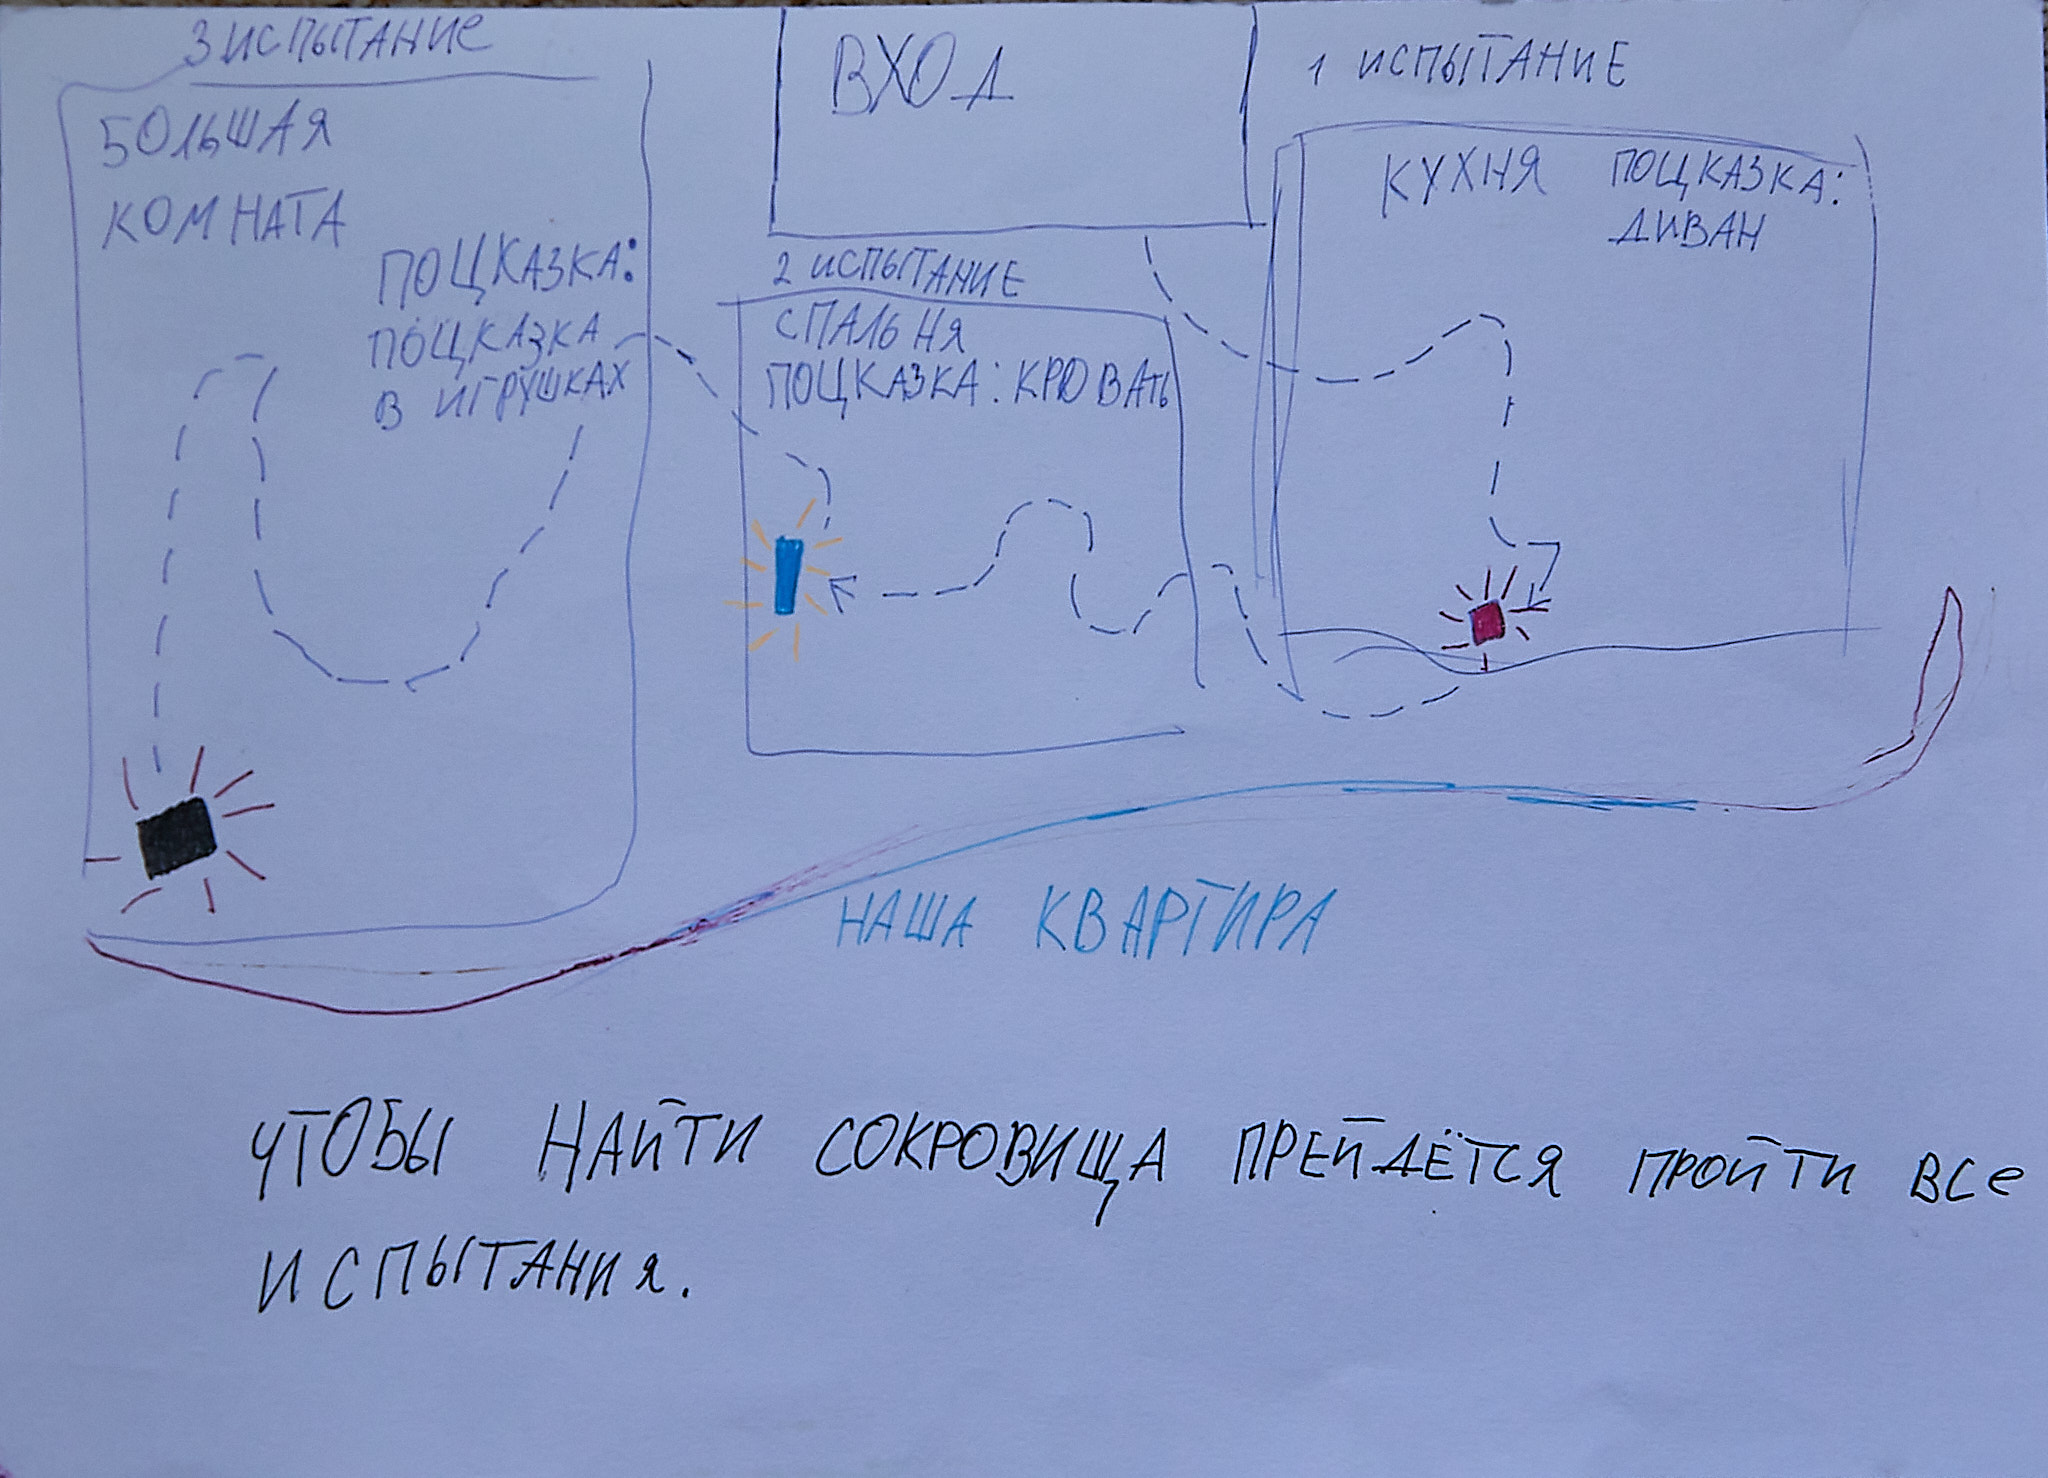 3 ИСПЫТАНИЕ
БОЛЬШАЯ
КОМНАТА
ПОЦКАЗКА:
ПОЦКАЗКА
В ИГРУШКАХ
ВХОД
2 ИСПЫТАНИЕ
СПАЛЬНЯ
ПОЦКАЗКА: КРОВАТЬ
1 ИСПЫТАНИЕ
КУХНЯ ПОЦКАЗКА:
ДИВАН
НАША КВАРТИРА
ЧТОБЫ НАЙТИ СОКРОВИЩА ПРЕЙДЁТСЯ ПРОЙТИ ВСе
ИСПЫТАНИЯ.